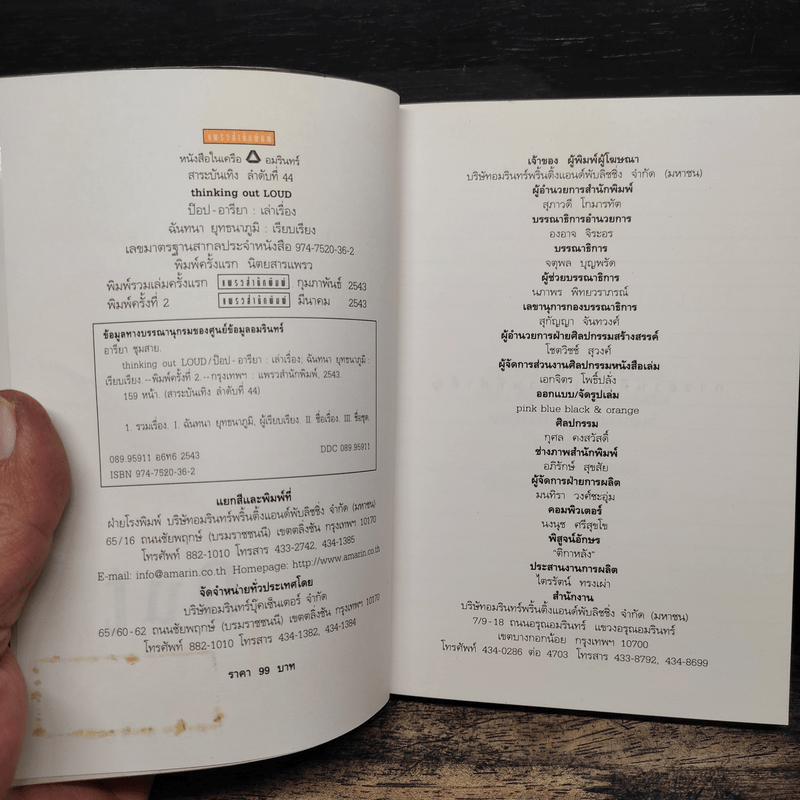 แพรวสำนักพิมพ์
หนังสือในเครือ อมรินทร์
สาระบันเทิง ลำดับที่ 44
thinking out LOUD
ป๊อป-อารียา : เล่าเรื่อง
ฉันทนา ยุทธนาภูมิ : เรียบเรียง
เลขมาตรฐานสากลประจำหนังสือ 974-7520-36-2
พิมพ์ครั้งแรก นิตยสารแพรว
พิมพ์รวมเล่มครั้งแรก แพรวสำนักพิมพ์ กุมภาพันธ์ 2543
พิมพ์ครั้งที่ 2 แพรวสำนักพิมพ์ มีนาคม 2543
ข้อมูลทางบรรณานุกรมของศูนย์ข้อมูลอมรินทร์
อารียา ชุมสาย.
thinking out LOUD/ป๊อป-อารียา : เล่าเรื่อง; ฉันทนา ยุทธนาภูมิ :
เรียบเรียง.--พิมพ์ครั้งที่ 2.--กรุงเทพฯ : แพรวสำนักพิมพ์, 2543.
159 หน้า. (สาระบันเทิง ลำดับที่ 44)
1. รวมเรื่อง. I. ฉันทนา ยุทธนาภูมิ, ผู้เรียบเรียง. II. ชื่อเรื่อง. III. ชื่อชุด.
089.95911 อ6ท6 2543 DDC 089.95911
ISBN 974-7520-36-2
แยกสีและพิมพ์ที่
ฝ่ายโรงพิมพ์ บริษัทอมรินทร์พริ้นติ้งแอนด์พับลิชชิ่ง จำกัด (มหาชน)
65/16 ถนนชัยพฤกษ์ (บรมราชชนนี) เขตตลิ่งชัน กรุงเทพฯ 10170
โทรศัพท์ 882-1010 โทรสาร 433-2742, 434-1385
E-mail: info@amarin.co.th Homepage: http://www.amarin.co.th
จัดจำหน่ายทั่วประเทศโดย
บริษัทอมรินทร์บุ๊คเซ็นเตอร์ จำกัด
65/60-62 ถนนชัยพฤกษ์ (บรมราชชนนี) เขตตลิ่งชัน กรุงเทพฯ 10170
โทรศัพท์ 882-1010 โทรสาร 434-1382, 434-1384
ราคา 99 บาท
เจ้าของ ผู้พิมพ์ผู้โฆษณา
บริษัทอมรินทร์พริ้นติ้งแอนด์พับลิชชิ่ง จำกัด (มหาชน)
ผู้อำนวยการสำนักพิมพ์
สุภาวดี โกมารทัต
บรรณาธิการอำนวยการ
องอาจ จิระอร
บรรณาธิการ
จตุพล บุญพรัด
ผู้ช่วยบรรณาธิการ
นภาพร พิทยวราภรณ์
เลขานุการกองบรรณาธิการ
สุกัญญา จันทวงศ์
ผู้อำนวยการฝ่ายศิลปกรรมสร้างสรรค์
โชตวิชช์ สุวงศ์
ผู้จัดการส่วนงานศิลปกรรมหนังสือเล่ม
เอกจิตร โพธิ์ปลั่ง
ออกแบบ/จัดรูปเล่ม
pink blue black & orange
ศิลปกรรม
กุศล คงสวัสดิ์
ช่างภาพสำนักพิมพ์
อภิรักษ์ สุขสัย
ผู้จัดการฝ่ายการผลิต
มนทิรา วงศ์ชะอุ่ม
คอมพิวเตอร์
นงนุช ศรีสุขโข
พิสูจน์อักษร
"ติกาหลัง"
ประสานงานการผลิต
ไตรรัตน์ ทรงเผ่า
สำนักงาน
บริษัทอมรินทร์พริ้นติ้งแอนด์พับลิชชิ่ง จำกัด (มหาชน)
7/9-18 ถนนอรุณอมรินทร์ แขวงอรุณอมรินทร์
เขตบางกอกน้อย กรุงเทพฯ 10700
โทรศัพท์ 434-0286 ต่อ 4703 โทรสาร 433-8792, 434-8699